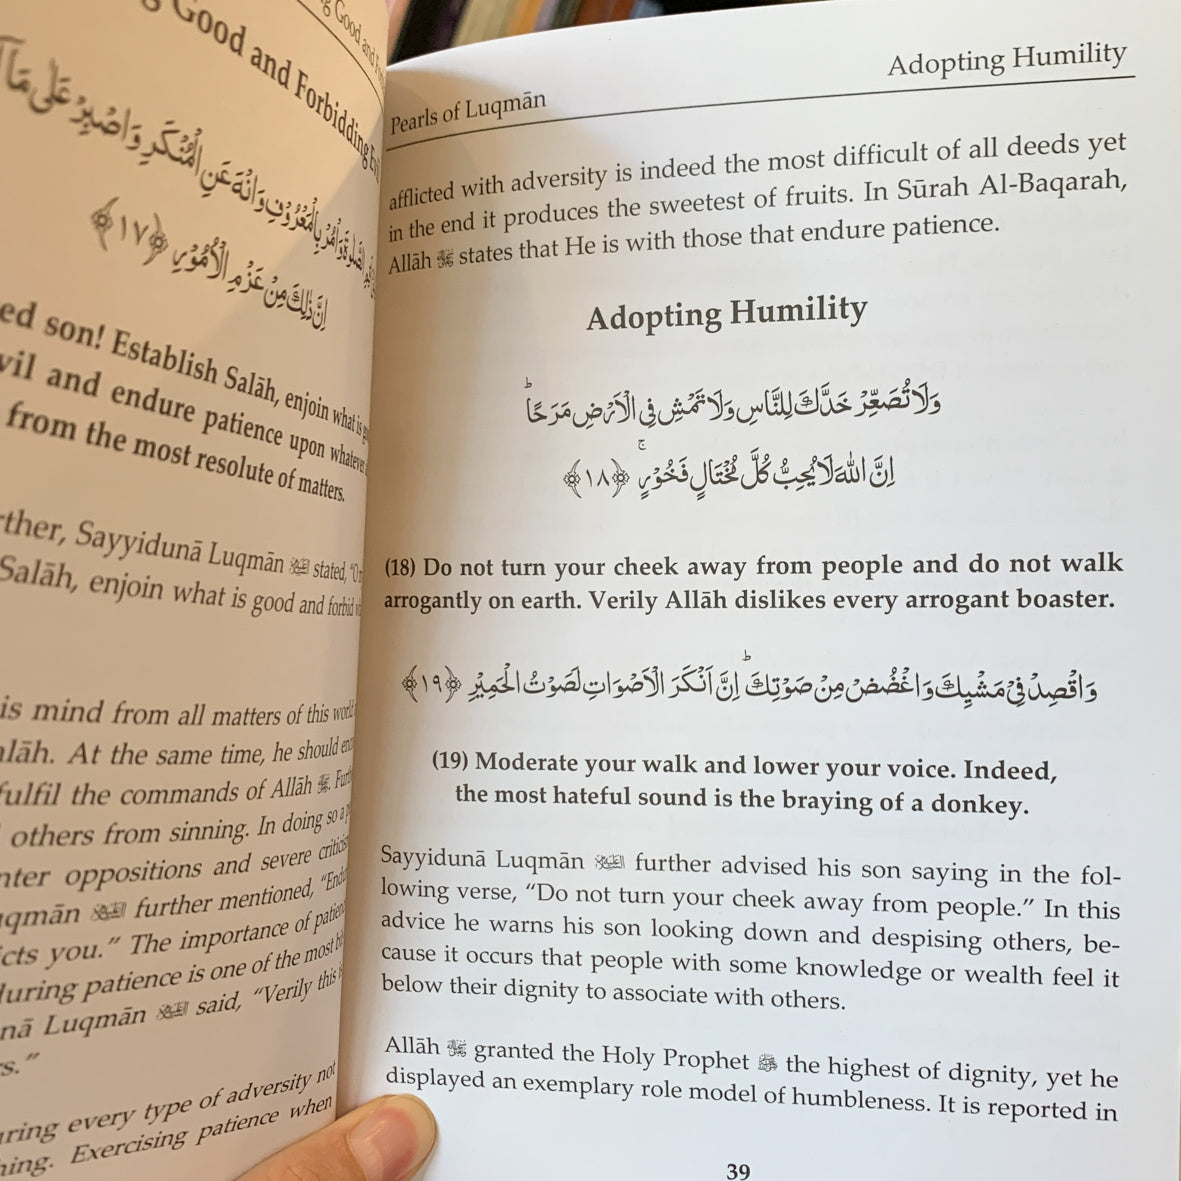 Good and
Good and Forbidding Evil
الْمُنْكَرِ وَاصْبِرْ عَلٰى مَآ
بِالْمَعْرُوْفِ وَانْهَ عَنِ
اِنَّ ذٰلِكَ مِنْ عَزْمِ الْاُمُوْرِ ﴿١٧﴾
ed son! Establish Salāh, enjoin what is
vil and endure patience upon whatever
from the most resolute of matters.
rther, Sayyidunā Luqmān stated,
Salāh, enjoin what is good and forbid
is mind from all matters of this world
alāh. At the same time, he should
fulfil the commands of Allāh ﷻ.
others from sinning. In doing so a
nter oppositions and severe
uqmān further mentioned,
cts you.” The importance of
during patience is one of the most
nā Luqmān said, “Verily this
s.”
uring every type of adversity not
hing. Exercising patience when
Pearls of Luqmān
Adopting Humility
afflicted with adversity is indeed the most difficult of all deeds yet
in the end it produces the sweetest of fruits. In Sūrah Al-Baqarah,
Allāh ﷻ states that He is with those that endure patience.
Adopting Humility
وَلَا تُصَعِّرْ خَدَّكَ لِلنَّاسِ وَلَا تَمْشِ فِى الْاَرْضِ مَرَحًا ؕ
اِنَّ اللّٰهَ لَا يُحِبُّ كُلَّ مُخْتَالٍ فَخُوْرٍ ۚ ﴿١٨﴾
(18) Do not turn your cheek away from people and do not walk
arrogantly on earth. Verily Allāh dislikes every arrogant boaster.
وَاقْصِدْ فِىْ مَشْيِكَ وَاغْضُضْ مِنْ صَوْتِكَ ؕ اِنَّ اَنْكَرَ الْاَصْوَاتِ لَصَوْتُ الْحَمِيْرِ ﴿١٩﴾
(19) Moderate your walk and lower your voice. Indeed,
the most hateful sound is the braying of a donkey.
Sayyidunā Luqmān further advised his son saying in the fol-
lowing verse, “Do not turn your cheek away from people.” In this
advice he warns his son looking down and despising others, be-
cause it occurs that people with some knowledge or wealth feel it
below their dignity to associate with others.
Allāh ﷻ granted the Holy Prophet ﷺ the highest of dignity, yet he
displayed an exemplary role model of humbleness. It is reported in
39